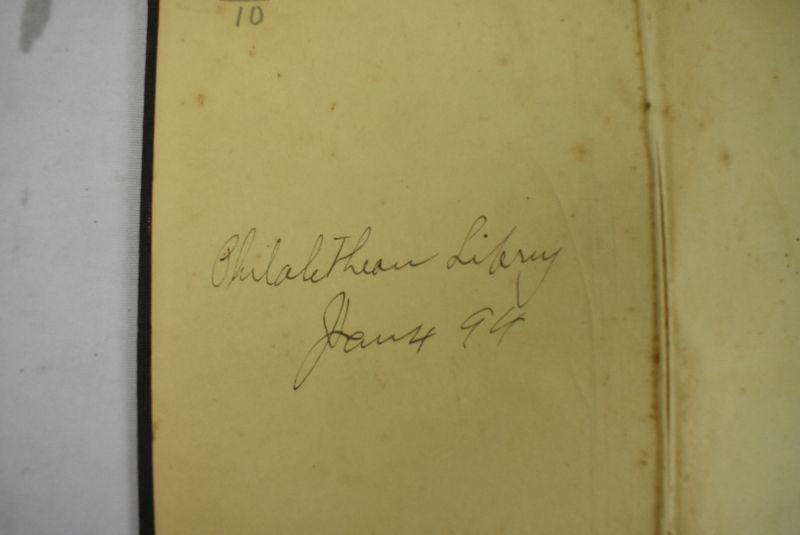 10
Philalethean Library
Jan 4 94